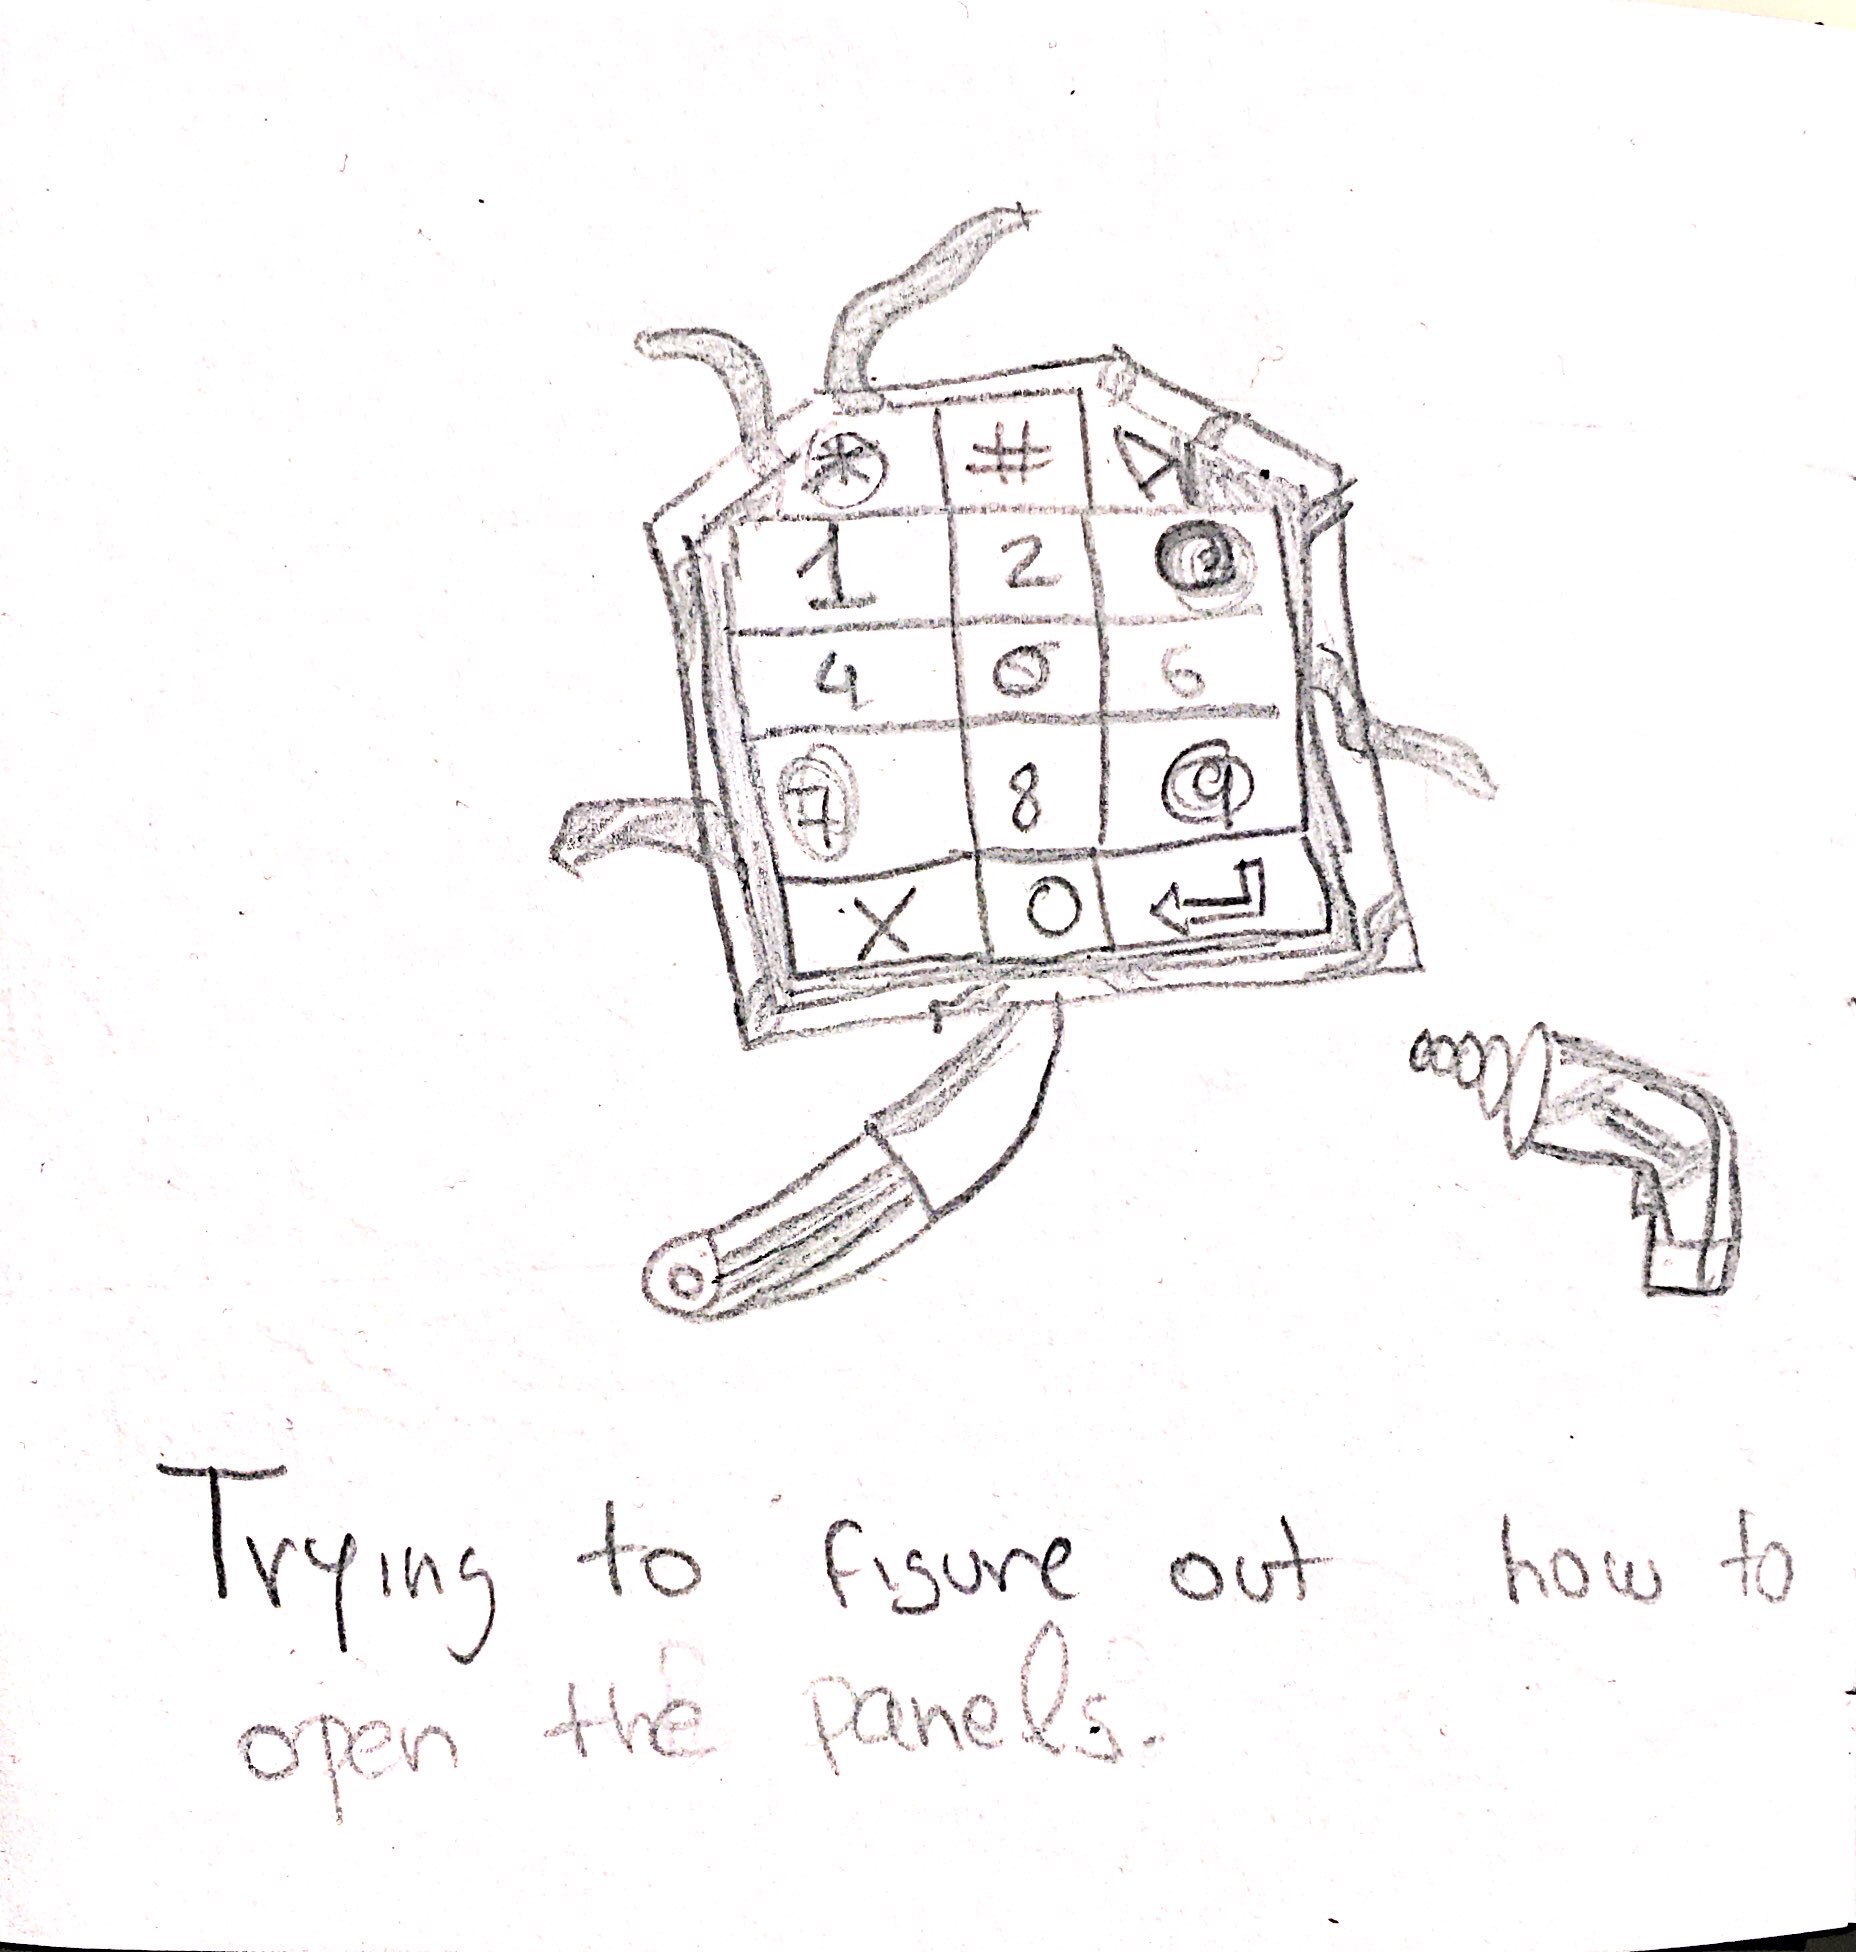 * #
1 2 3
4 5 6
7 8 9
X 0
Trying to figure out how to
open the panels.